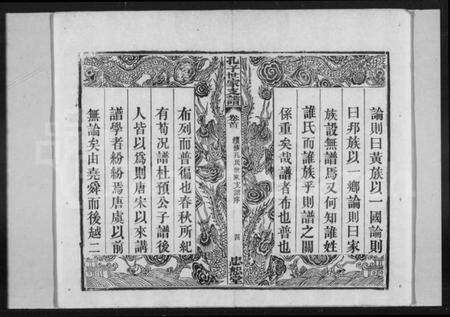 論則曰黃族以一國論則
曰邦族以一鄉論則曰家
族設無譜焉又何知誰姓
誰氏而誰族乎則譜之關
係重矣哉譜者布也普也
孔子世家支譜
卷首
孔氏世家支譜序
四
忠恕堂
布列而普徧也春秋所紀
有荀況譜杜預公子譜後
人皆以為則唐宋以來講
譜學者紛紛焉唐虞以前
無論矣由堯舜而後越二